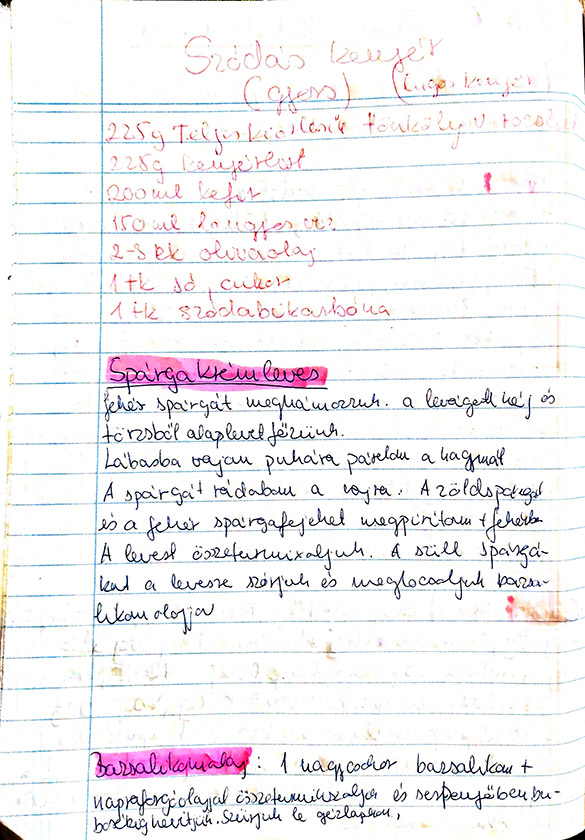 Szódás kenyér
(gyors) (lúgos kenyér)
225g Teljes kiőrlésű tönköly
225g kenyérliszt
200 ml kefir
150 ml langyos víz
2-3 ek olivaolaj
1 tk só, cukor
1 tk szódabikarbóna
Spárgakrémleves
fehér spárgát meghámozzuk. a levágott héj és
törzsből alaplevet főzünk.
Lábasba vajon puhára párolom a hagymát
A spárgát rádobom a vajra. A zöldspárgát
és a fehér spárgafejeket megpirítom + fehérbe
A levest összeturmixoljuk. A sült spárgá-
kat a levesre szórjuk és meglocsoljuk bazsa-
likom olajjal
Bazsalikomolaj: 1 nagycsokor bazsalikom +
napraforgóolajjal összeturmixoljuk és serpenyőben bu-
borékig hevítjük. Szűrjük le gézlapon,